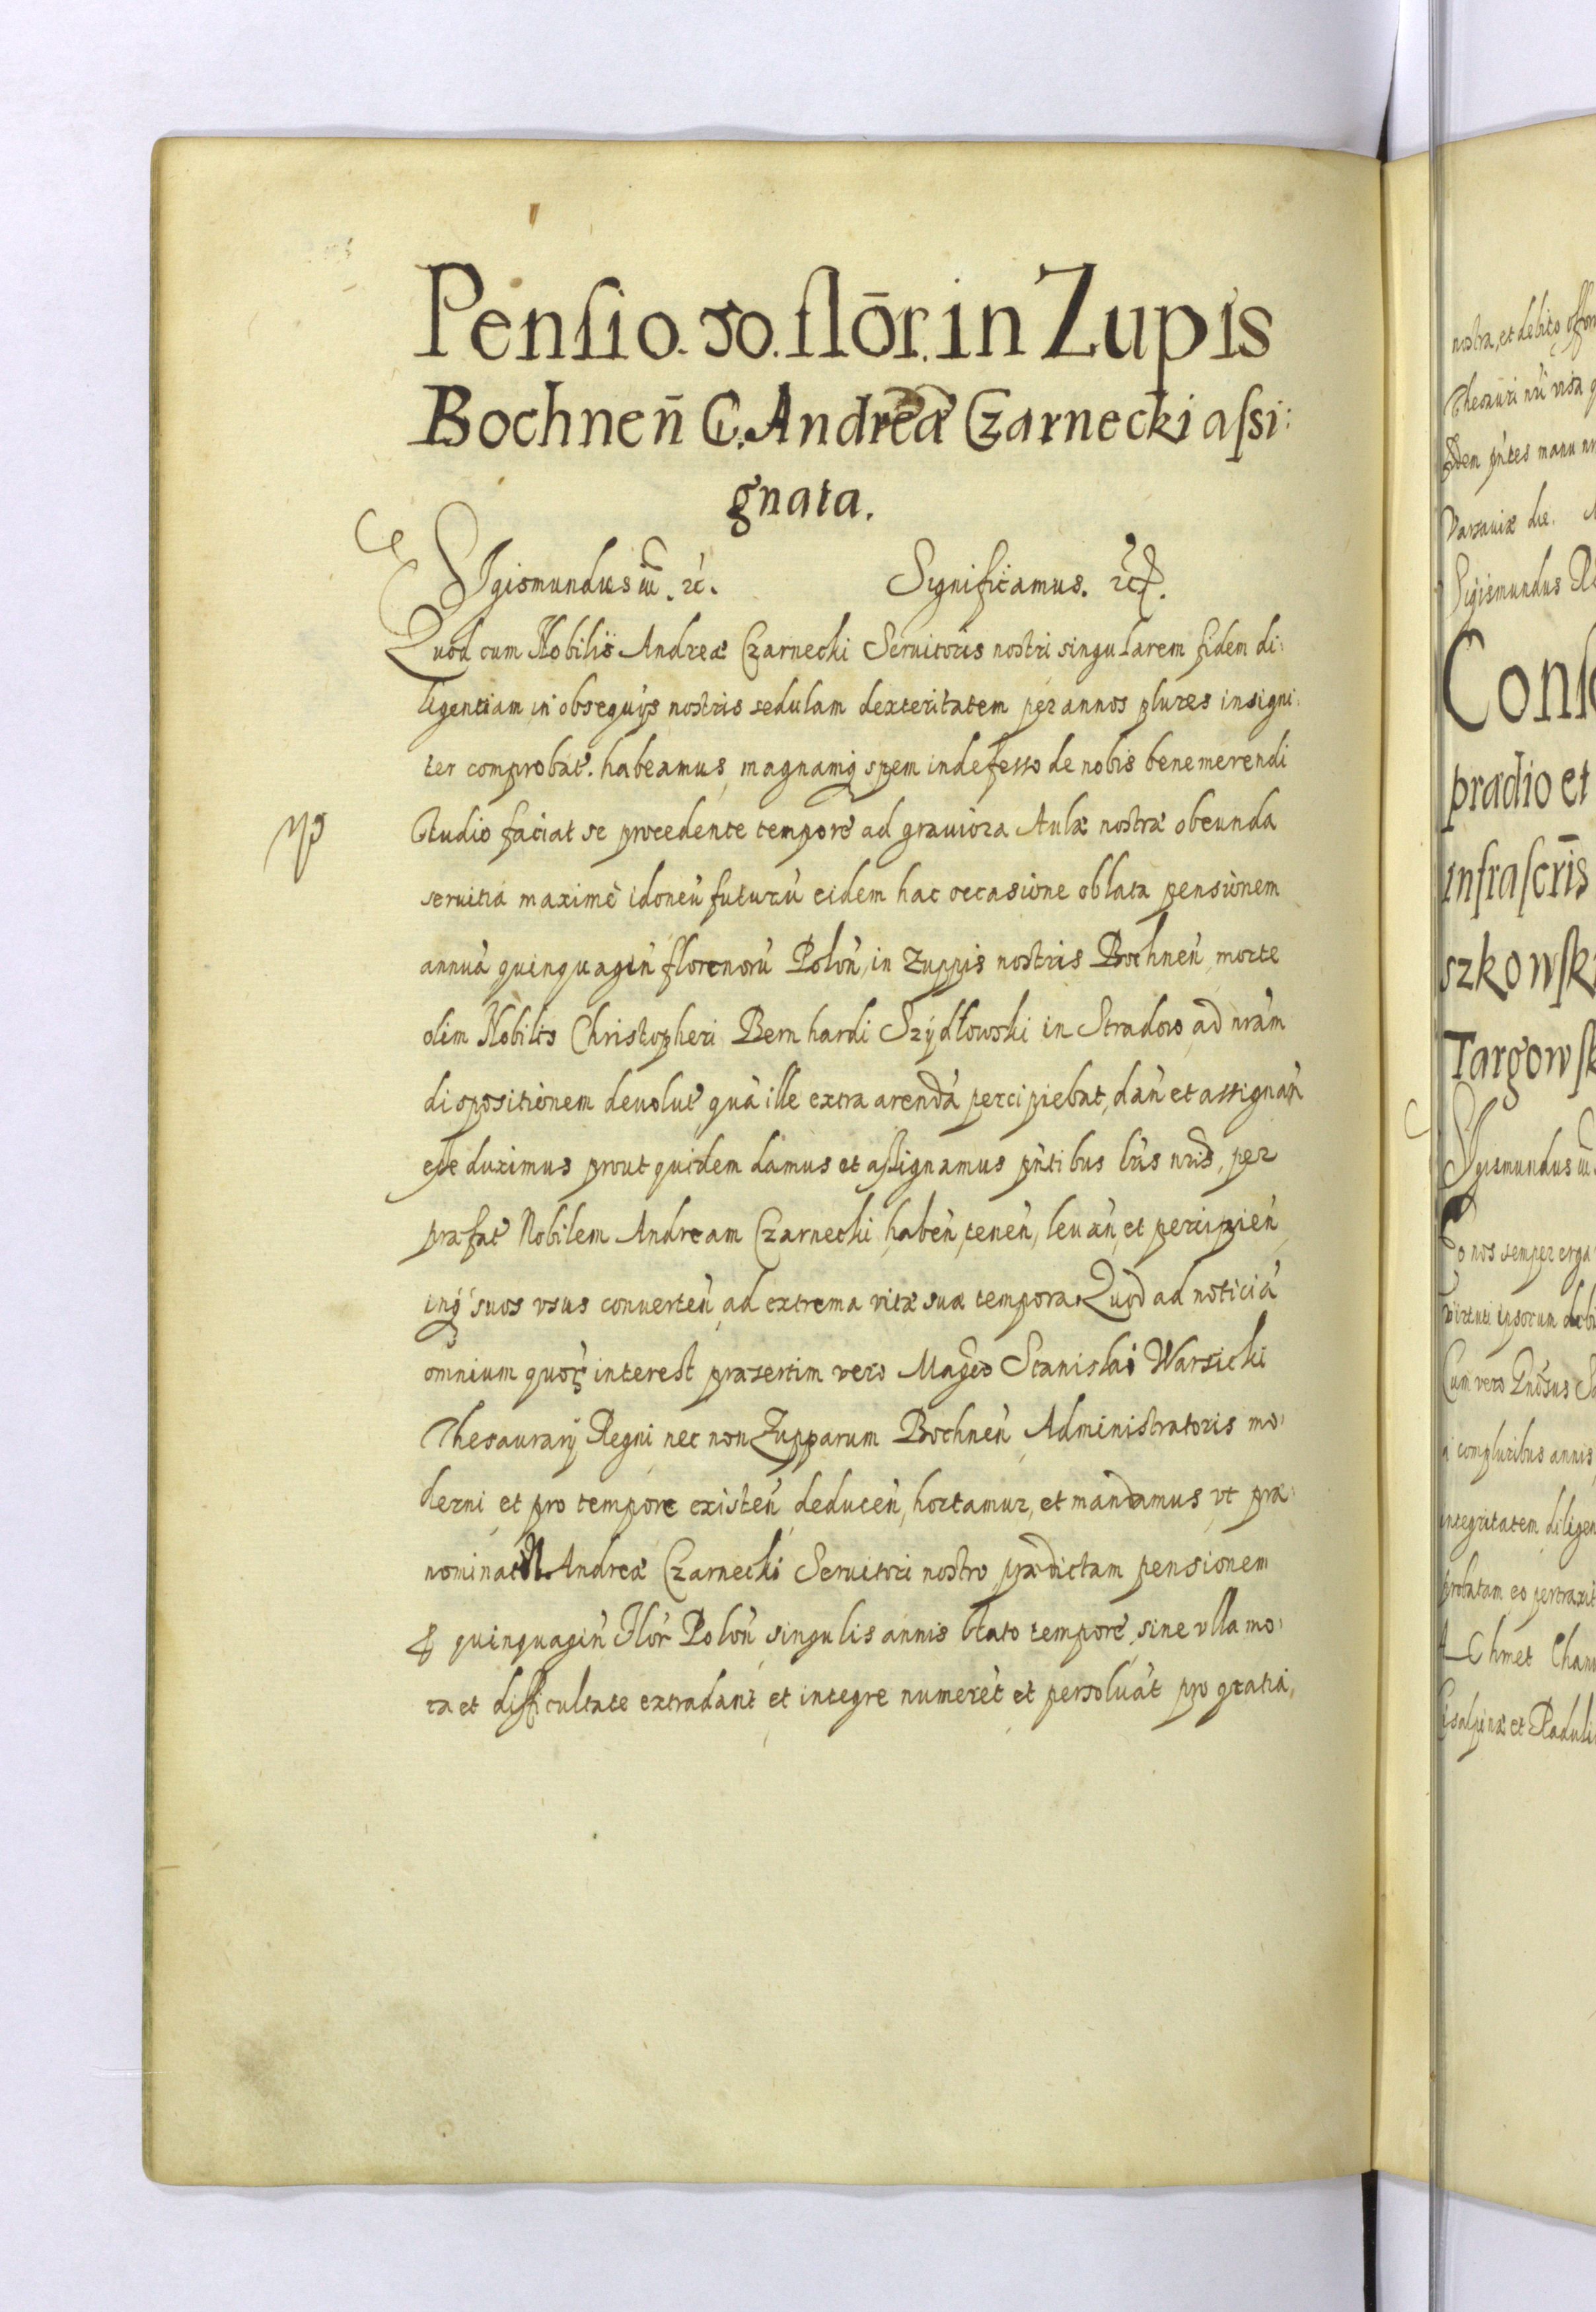 Pensio. 50. flōr. in Zupis
Bochneñ G. Andreæ Czarnecki assi:
gnata.
Sigismundus III. etc. Significamus. etc.
Quod cum Nobilis Andreæ Czarnecki Seruitoris nostri singularem fidem di:
ligentiam in obsequijs nostris sedulam dexteritatem per annos plures insigni:
ter comprobat. habeamus, magnamq́ spem indefesso de nobis benemerendi
studio faciat se procedente tempore ad grauiora Aulæ nostræ obeunda
seruitia maximè idoneū futurū eidem hac occasione oblata pensionem
annuā quinquagiń florenorū Poloń, in zuppis nostris Bochneń, morte
olim Nobilis Christopheri Bernhardi Szÿdłowski in Stradow ad nrām
dispositionem deuolut́ quā ille extra arendā percipiebat, dań et assignań
esse duximus prout quidem damus et assignamus pn̄tibus lr̄is nr̄is, per
præfat́ Nobilem Andream Czarnecki habeń, teneń, leuań, et percipień
inq́ suos vsus conuerteń, ad extrema vitæ suæ tempora. Quod ad noticiā
omnium quoꝝ interest præsertim vero Magc̄o Stanislai Warsicki
Thesaurarij Regni nec non Zupparum Bochneń Administratoris mo:
derni et pro tempore existeń deduceń, hortamur, et mandamus, vt præ:
nominat́ N. Andreæ Czarnecki Seruitori nostro prædictam pensionem
quinquagiń Flor Poloń singulis annis stato tempore, sine vlla mo:
ra et difficultate extradant et integre numerēt et persoluāt pro gratia,
nostra, et debito
Thesauri nr̄i
fidem pn̄tes manu
Varsauiæ die.
Sigismundus
prædio et
infrascr̄is
szkowsk
Targowsk
Sigismundus III
nos semper erga
virtuti ipsorum
Cum vero
compluribus annis
integritatem, diligen
probatam eo pertraxit
Achmet Cham